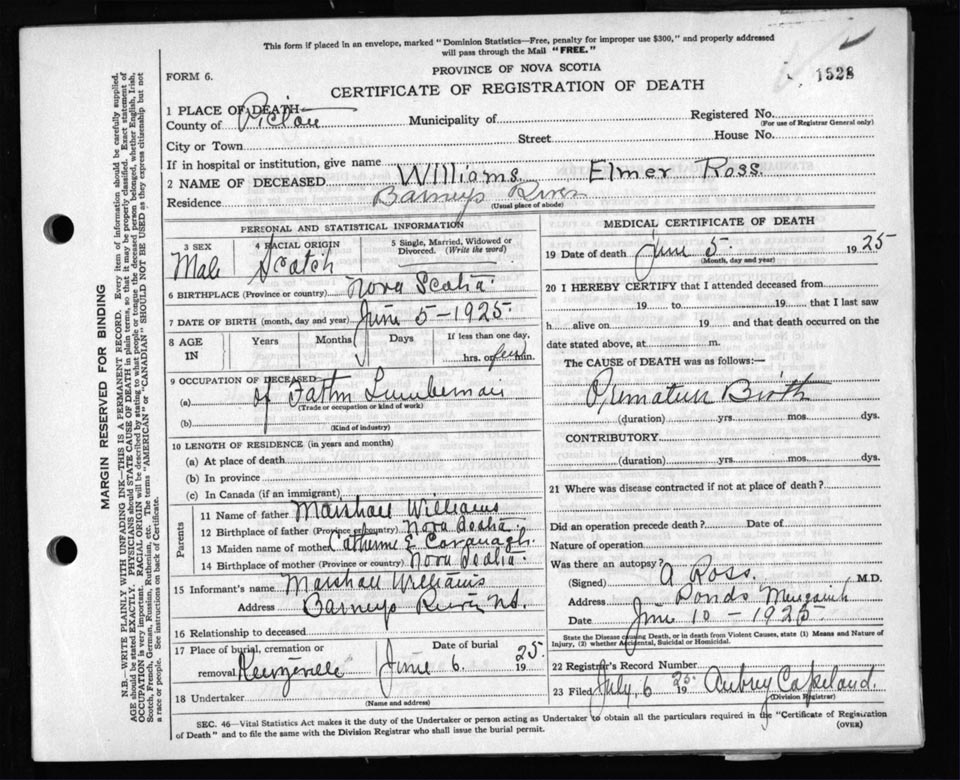 This form if placed in an envelope, marked "Dominion Statistics—Free, penalty for improper use $300," and properly addressed
will pass through the Mail "FREE."
1528
FORM 6.
PROVINCE OF NOVA SCOTIA
CERTIFICATE OF REGISTRATION OF DEATH
1 PLACE OF DEATH—
County of Pictou Municipality of Registered No.
(For use of Registrar General only)
City or Town Street House No.
If in hospital or institution, give name
2 NAME OF DECEASED Williams Elmer Ross.
Residence Barneys River
(Usual place of abode)
PERSONAL AND STATISTICAL INFORMATION
3 SEX 4 RACIAL ORIGIN 5 Single, Married, Widowed or Divorced. (Write the word)
Male Scotch
6 BIRTHPLACE (Province or country) Nova Scotia.
7 DATE OF BIRTH (month, day and year) June 5-1925.
8 AGE IN Years Months Days If less than one day,
hrs. or few min.
9 OCCUPATION OF DECEASED
(a) of Father Lumberman
(Trade or occupation or kind of work)
(b)
(Kind of industry)
10 LENGTH OF RESIDENCE (in years and months)
(a) At place of death
(b) In province
(c) In Canada (if an immigrant)
Parents
11 Name of father Marshall Williams
12 Birthplace of father (Province or country) Nova Scotia.
13 Maiden name of mother Catherine E Cavanagh.
14 Birthplace of mother (Province or country) Nova Scotia.
15 Informant's name Marshall Williams
Address Barneys River NS.
16 Relationship to deceased
17 Place of burial, cremation or Date of burial
removal. June 6. 1925.
18 Undertaker
(Name and address)
MEDICAL CERTIFICATE OF DEATH
19 Date of death June 5. 1925
(Month, day and year)
20 I HEREBY CERTIFY that I attended deceased from
19 to 19 that I last saw
h alive on 19 and that death occurred on the
date stated above, at m.
The CAUSE of DEATH was as follows:—
Premature Birth
(duration) yrs. mos. dys.
CONTRIBUTORY
(duration) yrs. mos. dys.
21 Where was disease contracted if not at place of death?
Did an operation precede death? Date of
Nature of operation
Was there an autopsy?
(Signed) A Ross. M.D.
Address Ponds
Date June 10-1925.
State the Disease causing Death, or in death from Violent Causes, state (1) Means and Nature of
Injury, (2) whether Accidental, Suicidal or Homicidal.
22 Registrar's Record Number
23 Filed July, 6 1925 Aubrey Copeland.
(Division Registrar)
SEC. 46—Vital Statistics Act makes it the duty of the Undertaker or person acting as Undertaker to obtain all the particulars required in the "Certificate of Registration
of Death" and to file the same with the Division Registrar who shall issue the burial permit. (OVER)
MARGIN RESERVED FOR BINDING
N.B. WRITE PLAINLY WITH UNFADING INK—THIS IS A PERMANENT RECORD. Every item of information should be carefully supplied.
AGE should be stated EXACTLY. PHYSICIANS should STATE CAUSE OF DEATH in plain terms, so that it may be properly classified. Exact statement of
OCCUPATION is very important. RACIAL ORIGIN will be described by stating to what people or tongue the deceased person belonged, whether English, Irish,
Scotch, French, German, Russian, Ruthenian, etc. The terms "AMERICAN" or "CANADIAN" SHOULD NOT BE USED as they express citizenship but not
a race or people. See instructions on back of Certificate.